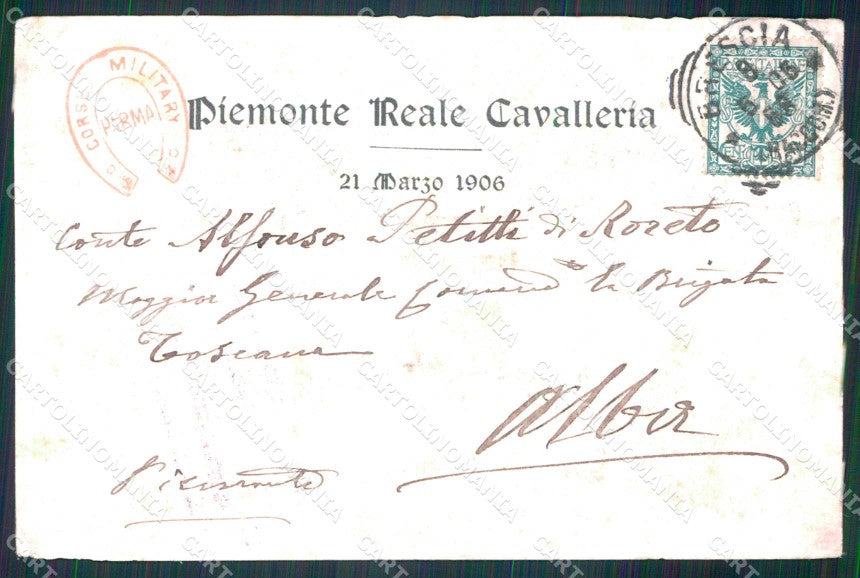 CORSE MILITARY
PERMA
BRESCIA
Piemonte Reale Cavalleria
21 Marzo 1906
Conte Alfonso Petitti di Roreto
Maggior Generale Comand.te la Brigata
Toscana
Alba
Piemonte
CARTOLINOMANIA